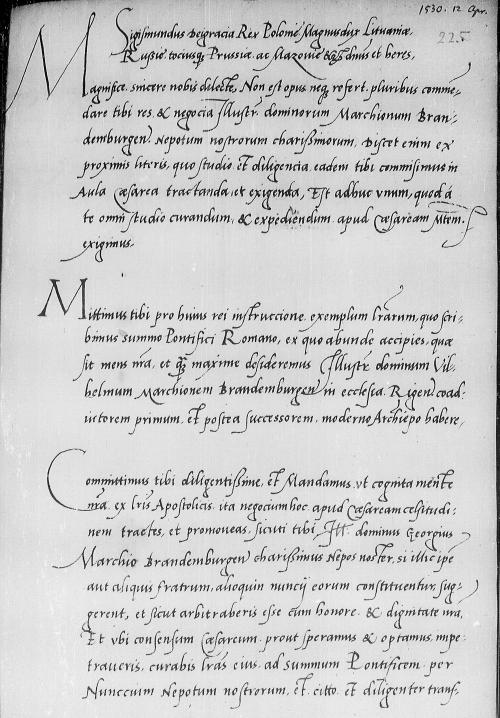 1530. 12 Apr.
225
Sigismundus Dei gracia Rex Polonie Magnus dux Lituaniæ
Russie tociusq Prussiæ ac Mazouie dñus et heres,
Magnifice, sincere nobis dilecte, Non est opus neq refert, pluribus comme-
dare tibi res, & negocia Illustr. dominorum Marchionum Bran-
demburgeñ. Nepotum nostrorum charissimorum, Discet enim ex
proximis literis, quo studio et diligencia, eadem tibi commisimus in
Aula Cæsarea tractanda, et exigenda, Est adhuc vnum, quod á
te omni studio curandum, & expediendum apud Cæsaream Mtem.
exigimus.
Mittimus tibi pro huius rei instruccione, exemplum lrarum, quo scri-
bimus summo Pontifici Romano, ex quo abunde accipies, quæ
sit mens nra, et q maxime desideremus Illustr dominum Vil-
helmum Marchionem Brandemburgeñ in ecclesia Rigeñ coad-
iutorem primum, et postea successorem, moderno Archiepo habere,
Committimus tibi diligentissime, et Mandamus, vt cognita mente
nra, ex lris Apostolicis, ita negocium hoc, apud Cæsaream celsitudi-
nem tractes, et promoueas, sicuti tibi Ill. dominus Georgius
Marchio Brandemburgeñ charissimus Nepos noster, si illic ipe
aut aliquis fratrum, alioquin nuncii eorum constituentur, sug-
gerent, et sicut arbitraberis esse cum honore & dignitate nra,
Et vbi consensum Cæsareum, prout speramus & optamus, impe-
traueris, curabis lras eius, ad summum Pontificem per
Nunccium Nepotum nostrorum, et citto, et diligenter transf-